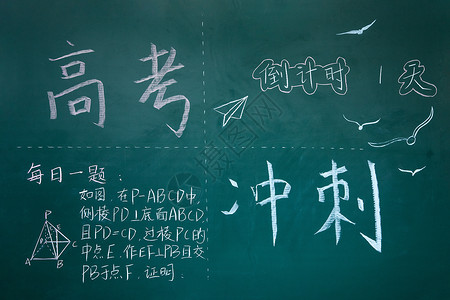 高考
倒计时 1天
每日一题：
如图.在P-ABCD中,
侧棱PD⊥底面ABCD,
且PD=CD,过棱PC的
中点E.作EF⊥PB且交
PB于点F.证明.
P
E
A
B
C
冲刺